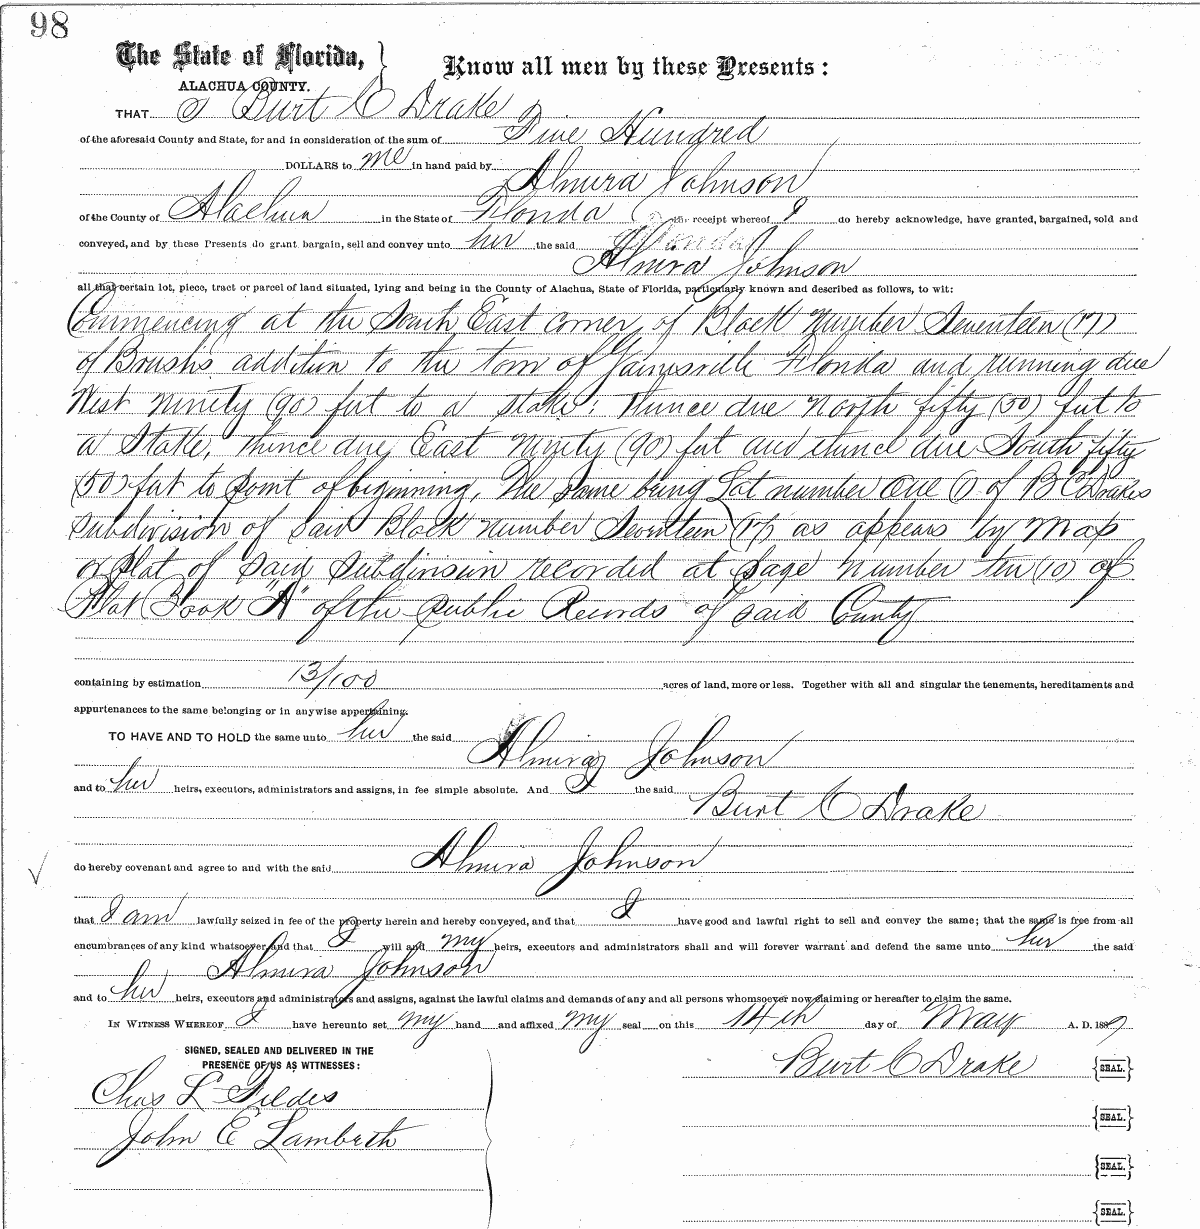 98
The State of Florida, }
ALACHUA COUNTY.
Know all men by these Presents:
THAT I Burt C Drake
of the aforesaid County and State, for and in consideration of the sum of Five Hundred
DOLLARS to me in hand paid by
Almira Johnson
of the County of Alachua in the State of Florida the receipt whereof I do hereby acknowledge, have granted, bargained, sold and
conveyed, and by these Presents do grant bargain, sell and convey unto her the said
Almira Johnson
all that certain lot, piece, tract or parcel of land situated, lying and being in the County of Alachua, State of Florida, particularly known and described as follows, to wit:
Commencing at the South East corner of Block number Seventeen (17)
of Brushs addition to the town of Gainesville Florida and running due
West ninety (90) feet to a stake; thence due North fifty (50) feet to
a Stake, thence due East ninety (90) feet and thence due South fifty
(50) feet to point of beginning, The same being Lot number One (1) of B C Drakes
subdivision of said Block number Seventeen (17) as appears by Map
or plat of said subdivision recorded at page number ten (10) of
Plat Book "A" of the public Records of said County
containing by estimation 13/100 acres of land, more or less. Together with all and singular the tenements, hereditaments and
appurtenances to the same belonging or in anywise appertaining.
TO HAVE AND TO HOLD the same unto her the said
Almira Johnson
and to her heirs, executors, administrators and assigns, in fee simple absolute. And I the said
Burt C Drake
do hereby covenant and agree to and with the said Almira Johnson
that I am lawfully seized in fee of the property herein and hereby conveyed, and that I have good and lawful right to sell and convey the same; that the same is free from all
encumbrances of any kind whatsoever and that I will and my heirs, executors and administrators shall and will forever warrant and defend the same unto her the said
Almira Johnson
and to her heirs, executors and administrators and assigns, against the lawful claims and demands of any and all persons whomsoever now claiming or hereafter to claim the same.
IN WITNESS WHEREOF I have hereunto set my hand and affixed my seal on this 14th day of May A. D. 1889
SIGNED, SEALED AND DELIVERED IN THE
PRESENCE OF US AS WITNESSES:
Burt C Drake {SEAL.}
Chas L Fildes
{SEAL.}
John E Lambeth
{SEAL.}
{SEAL.}